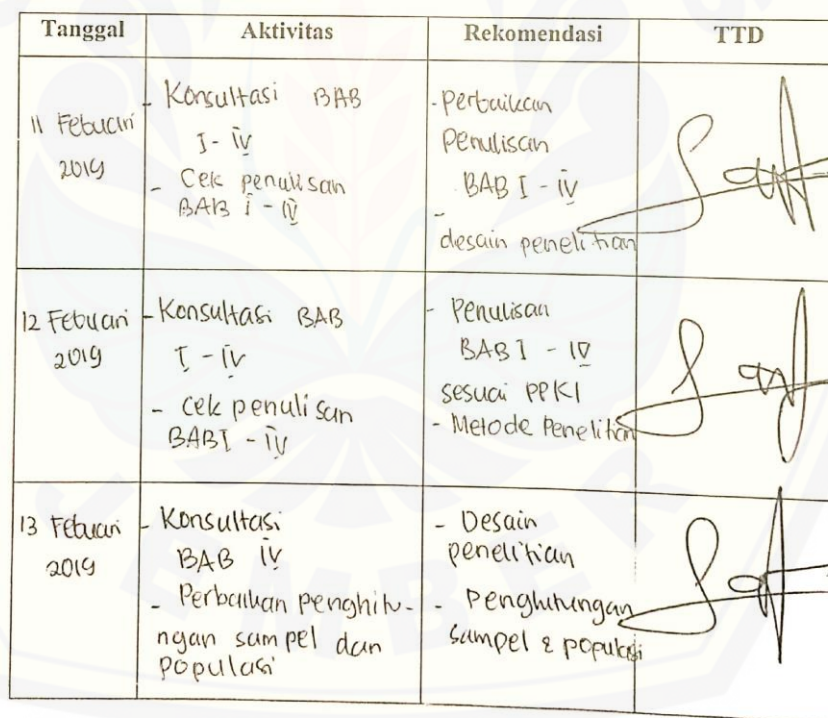 Tanggal Aktivitas Rekomendasi TTD
11 Febuari
2019
- Konsultasi BAB
I - IV
- Cek penulisan
BAB I - IV
- Perbaikan
Penulisan
BAB I - IV
-
desain penelitian
12 Febuari
2019
- Konsultasi BAB
I - IV
- cek penulisan
BAB I - IV
- Penulisan
BAB I - IV
sesuai PPKI
- Metode Penelitian
13 Febuari
2019
- Konsultasi
BAB IV
- Perbaikan penghitu-
ngan sampel dan
populasi
- Desain
penelitian
- Penghitungan
sampel & populasi
JEMBER